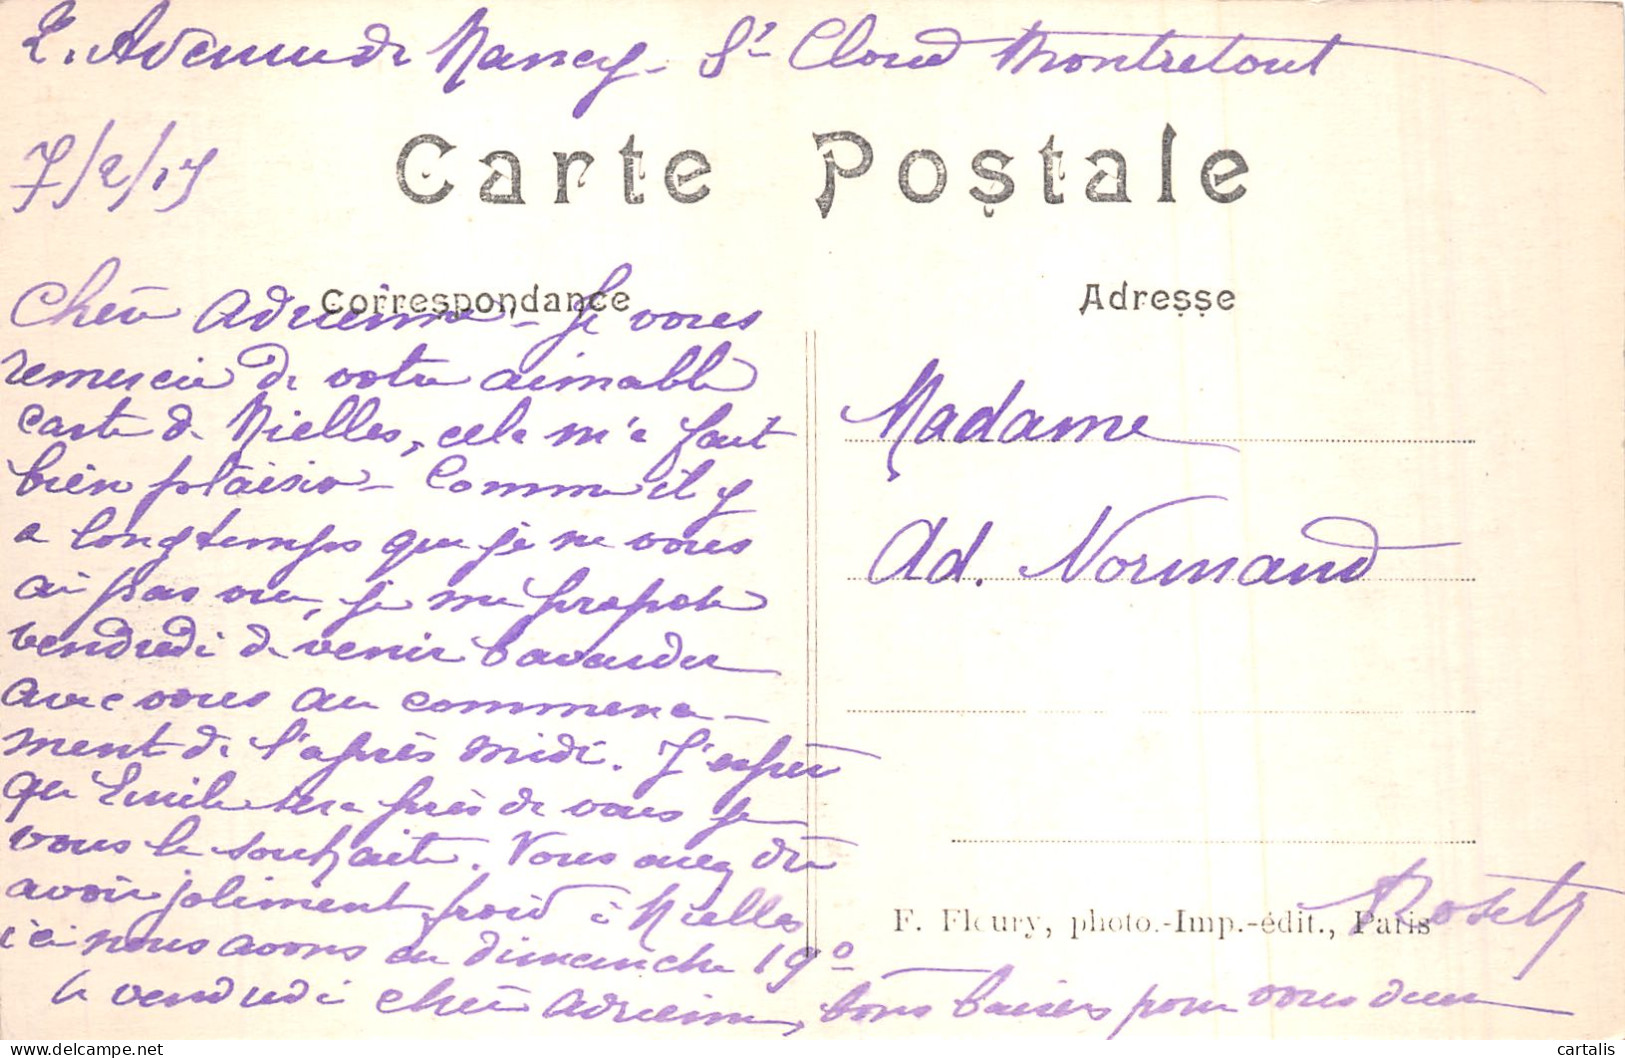 2. Avenue de Nancy - St Cloud Montretout
7/2/17
Carte Postale
Correspondance
Adresse
Chère Adrienne - Je vous
remercie de votre aimable
carte de Nielles, cela m'a fait
bien plaisir - Comme il y
a longtemps que je ne vous
ai pas vue, je me propose
vendredi de venir bavarder
avec vous au commence-
ment de l'après midi. J'espère
que Emile sera près de vous je
vous le souhaite. Vous avez dû
avoir joliment froid à Nielles
ici nous avons eu dimanche 19°
à vendredi chère Adrienne, bons baisers pour vous deux
Madame
Ad. Normand
F. Fleury, photo.-Imp.-édit., Paris
cartalis